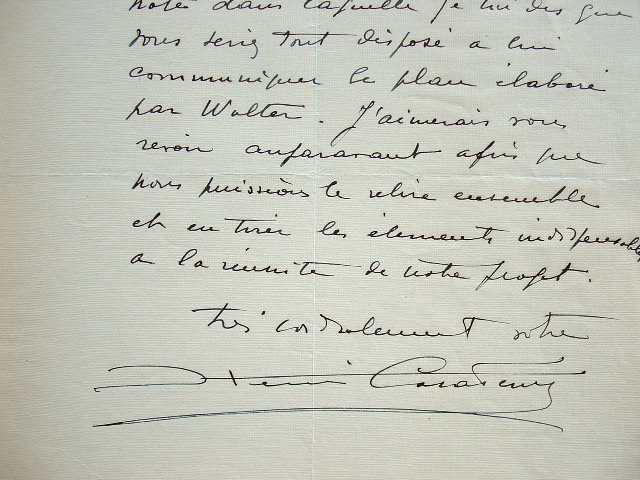 note dans laquelle je lui dis que
vous seriez tout disposé a lui
communiquer le plan élaboré
par Walter. J'aimerais vous
revoir auparavant afin que
nous puissions le relire ensemble
et en tirer les éléments indispensables
a la réussite de notre projet.
très cordialement votre
Henri Casadesus